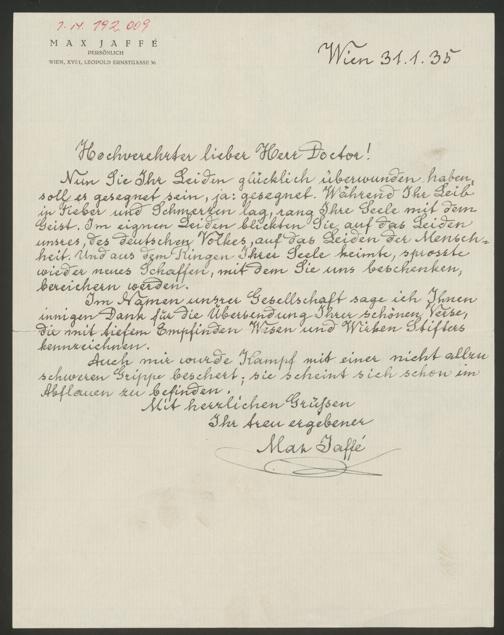 I.N. 192.009
MAX JAFFÉ
PERSÖNLICH
WIEN, XVI/1, LEOPOLD ERNSTGASSE
Wien 31.1.35
Hochverehrter lieber Herr Doctor!
Nun Sie Ihr Leiden glücklich überwunden haben,
soll es gesegnet sein, ja: gesegnet. Während Ihr Leib
in Fieber und Schmerzen lag, rang Ihre Seele mit dem
Geist. Im eignen Leiden blickten Sie auf das Leiden
unsres, des deutschen Volkes, auf das Leiden der Mensch-
heit. Und aus dem Ringen Ihrer Seele keimte, sprosste
wieder neues Schaffen, mit dem Sie uns beschenken,
bereichern werden.
Im Namen unsrer Gesellschaft sage ich Ihnen
innigen Dank für die Übersendung Ihrer schönen Verse,
die mit tiefem Empfinden Wesen und Wirken Stifters
kennzeichnen.
Auch mir wurde Kampf mit einer nicht allzu
schweren Grippe beschert; sie scheint sich schon im
Abflauen zu befinden.
Mit herzlichen Grüßen
Ihr treu ergebener
Max Jaffé